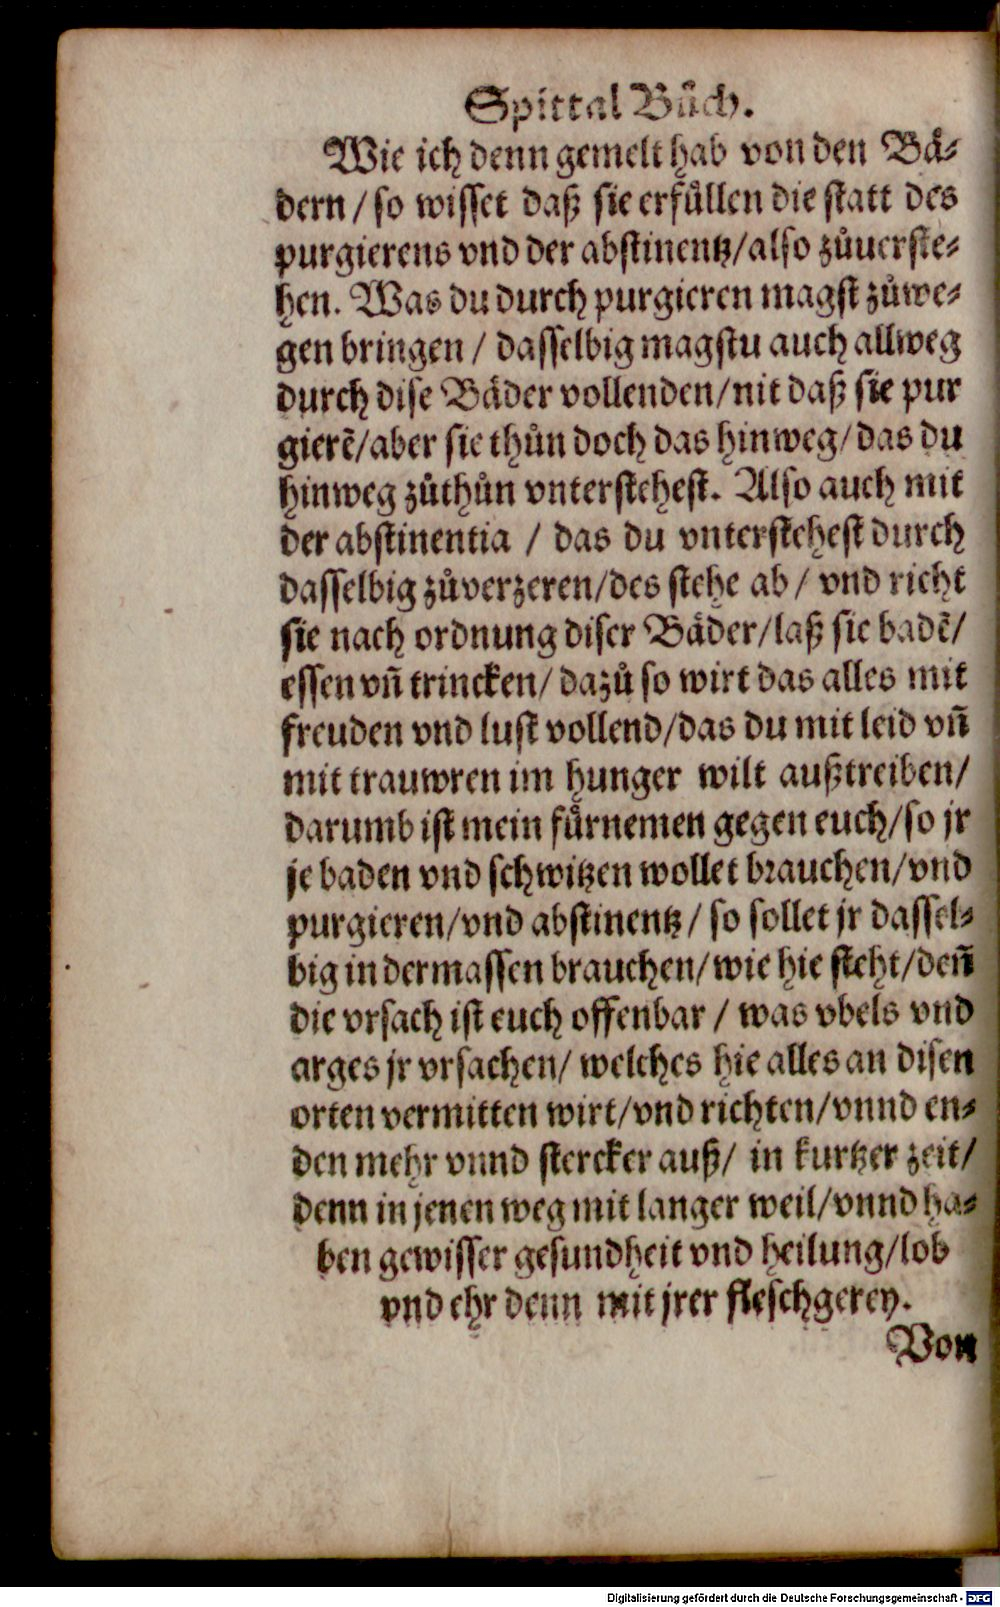 Spittal Bůch.
Wie ich denn gemelt hab von den Bä-
dern / so wisset daß sie erfüllen die statt des
purgierens vnd der abstinentz/also zůuerste-
hen. Was du durch purgieren magst zůwe-
gen bringen / dasselbig magstu auch allweg
durch dise Bäder vollenden/nit daß sie pur
gierẽ/aber sie thůn doch das hinweg/das du
hinweg zůthůn vnterstehest. Also auch mit
der abstinentia / das du vnterstehest durch
dasselbig zůverzeren/des stehe ab / vnd richt
sie nach ordnung diser Bäder/laß sie badẽ/
essen vñ trincken/ dazů so wirt das alles mit
freuden vnd lust vollend/das du mit leid vñ
mit trauwren im hunger wilt außtreiben/
darumb ist mein fürnemen gegen euch/so jr
je baden vnd schwitzen wollet brauchen/vnd
purgieren/vnd abstinentz / so sollet jr dassel-
big in dermassen brauchen/wie hie steht/deñ
die vrsach ist euch offenbar / was vbels vnd
arges jr vrsachen/ welches hie alles an disen
orten vermitten wirt/vnd richten/vnnd en-
den mehr vnnd stercker auß/ in kurtzer zeit/
denn in jenen weg mit langer weil/vnnd ha-
ben gewisser gesundheit vnd heilung/lob
vnd ehr denn mit jrer fleschgerey.
Von
Digitalisierung gefördert durch die Deutsche Forschungsgemeinschaft - DFG